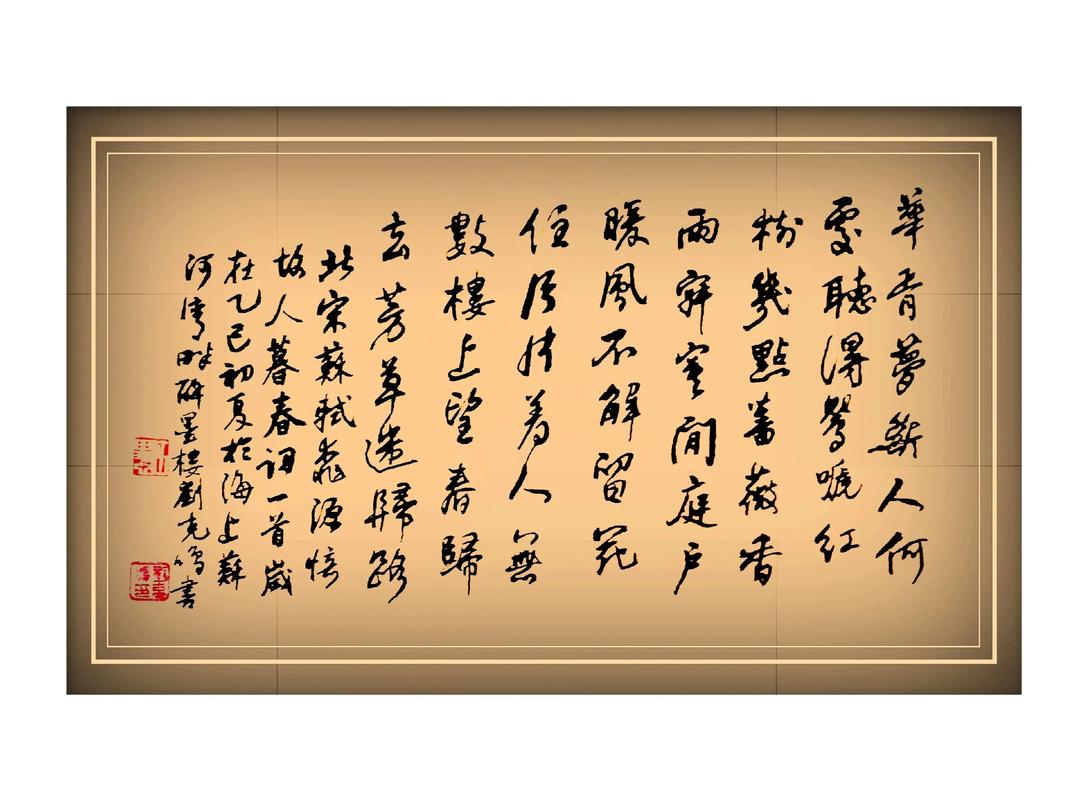 華胥夢斷人何
處聽得鶯嗁紅
樹幾點薔薇香
雨寂寞閒庭戶
暖風不解留花
住片片着人無
數樓上望春歸
去芳草迷歸路
北宋蘇軾桃源憶
故人暮春詞一首歲
在乙巳初夏於海上蘇
河灣畔醉墨樓劉克鳴書